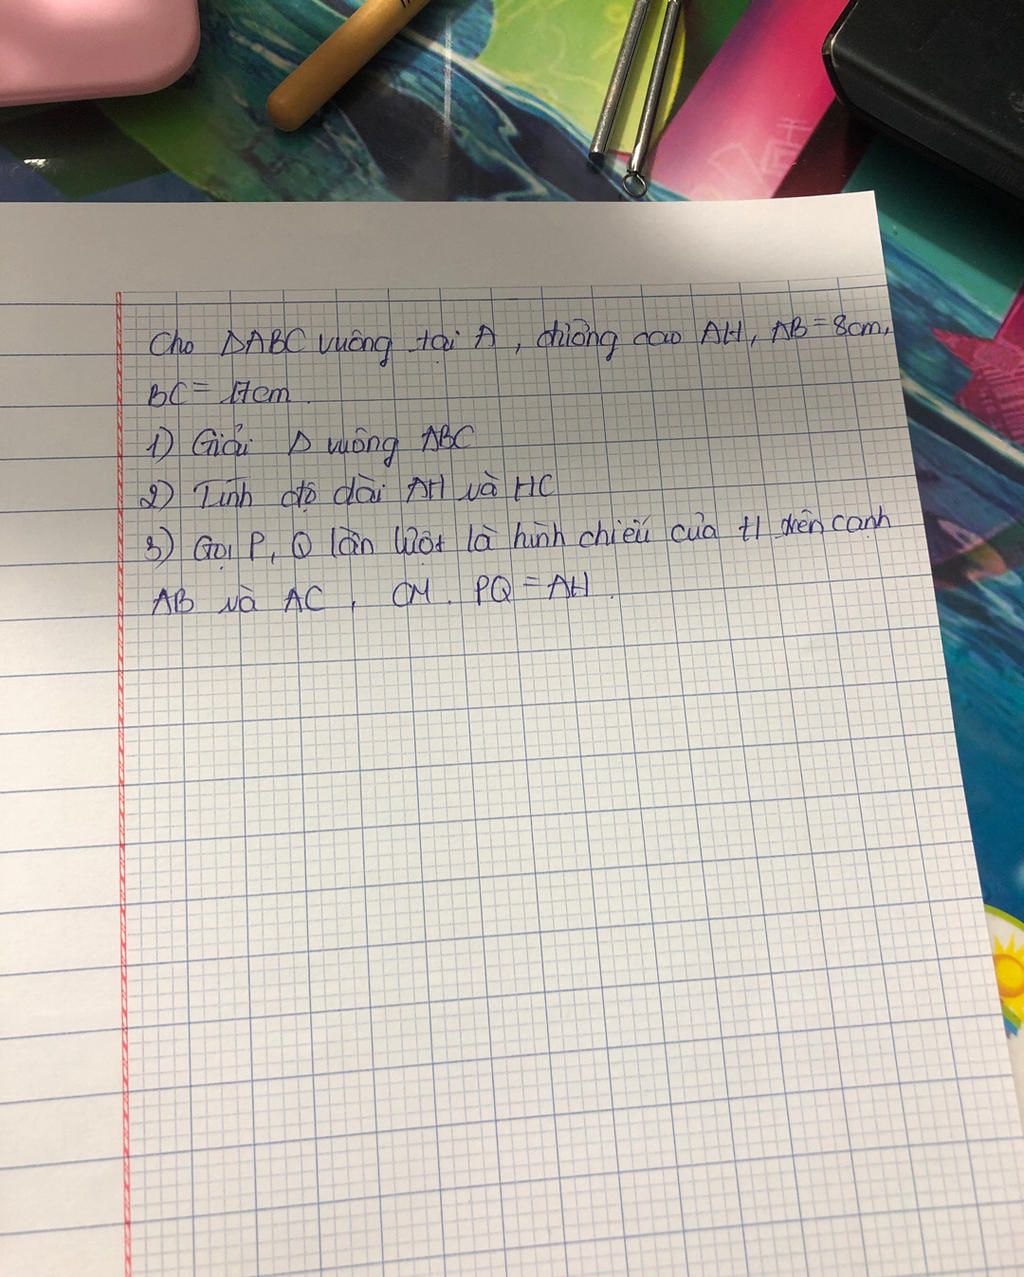 Cho ΔABC vuông tại A, đường cao AH, AB = 8cm,
BC = 17cm.
1) Giải Δ vuông ABC
2) Tính độ dài AH và HC
3) Gọi P, Q lần lượt là hình chiếu của H trên cạnh
AB và AC, CM. PQ = AH.